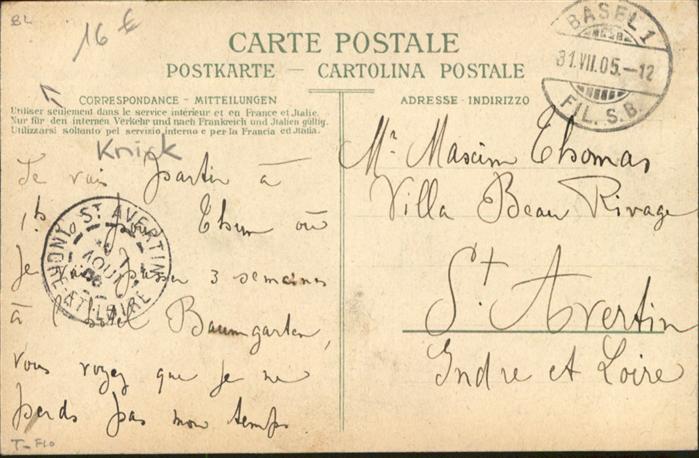 BL
16 €
CARTE POSTALE
POSTKARTE — CARTOLINA POSTALE
BASEL 1
31.VII.05.-12
FIL. S. B.
CORRESPONDANCE - MITTEILUNGEN
Utiliser seulement dans le service intérieur et en France et Italie.
Nur für den internen Verkehr und nach Frankreich und Italien gültig.
Utilizzarsi soltanto pel servizio interno e per la Francia ed Italia.
Knick
Je vais partir à
1h pour Thun où
je vais passer 3 semaines
à l'hôtel Baumgarten,
vous voyez que je ne
perds pas mon temps
ST AVERTIN
AOUT
05
ET LOIRE
T-FLO
ADRESSE - INDIRIZZO
Mr Maxim Thomas
Villa Beau Rivage
St Avertin
Indre et Loire